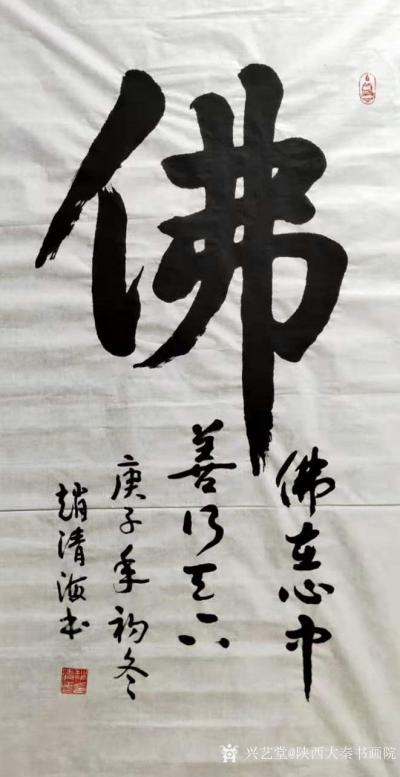 佛
佛在心中
善行天下
庚子年初冬
趙清海书
兴艺堂@陕西大秦书画院